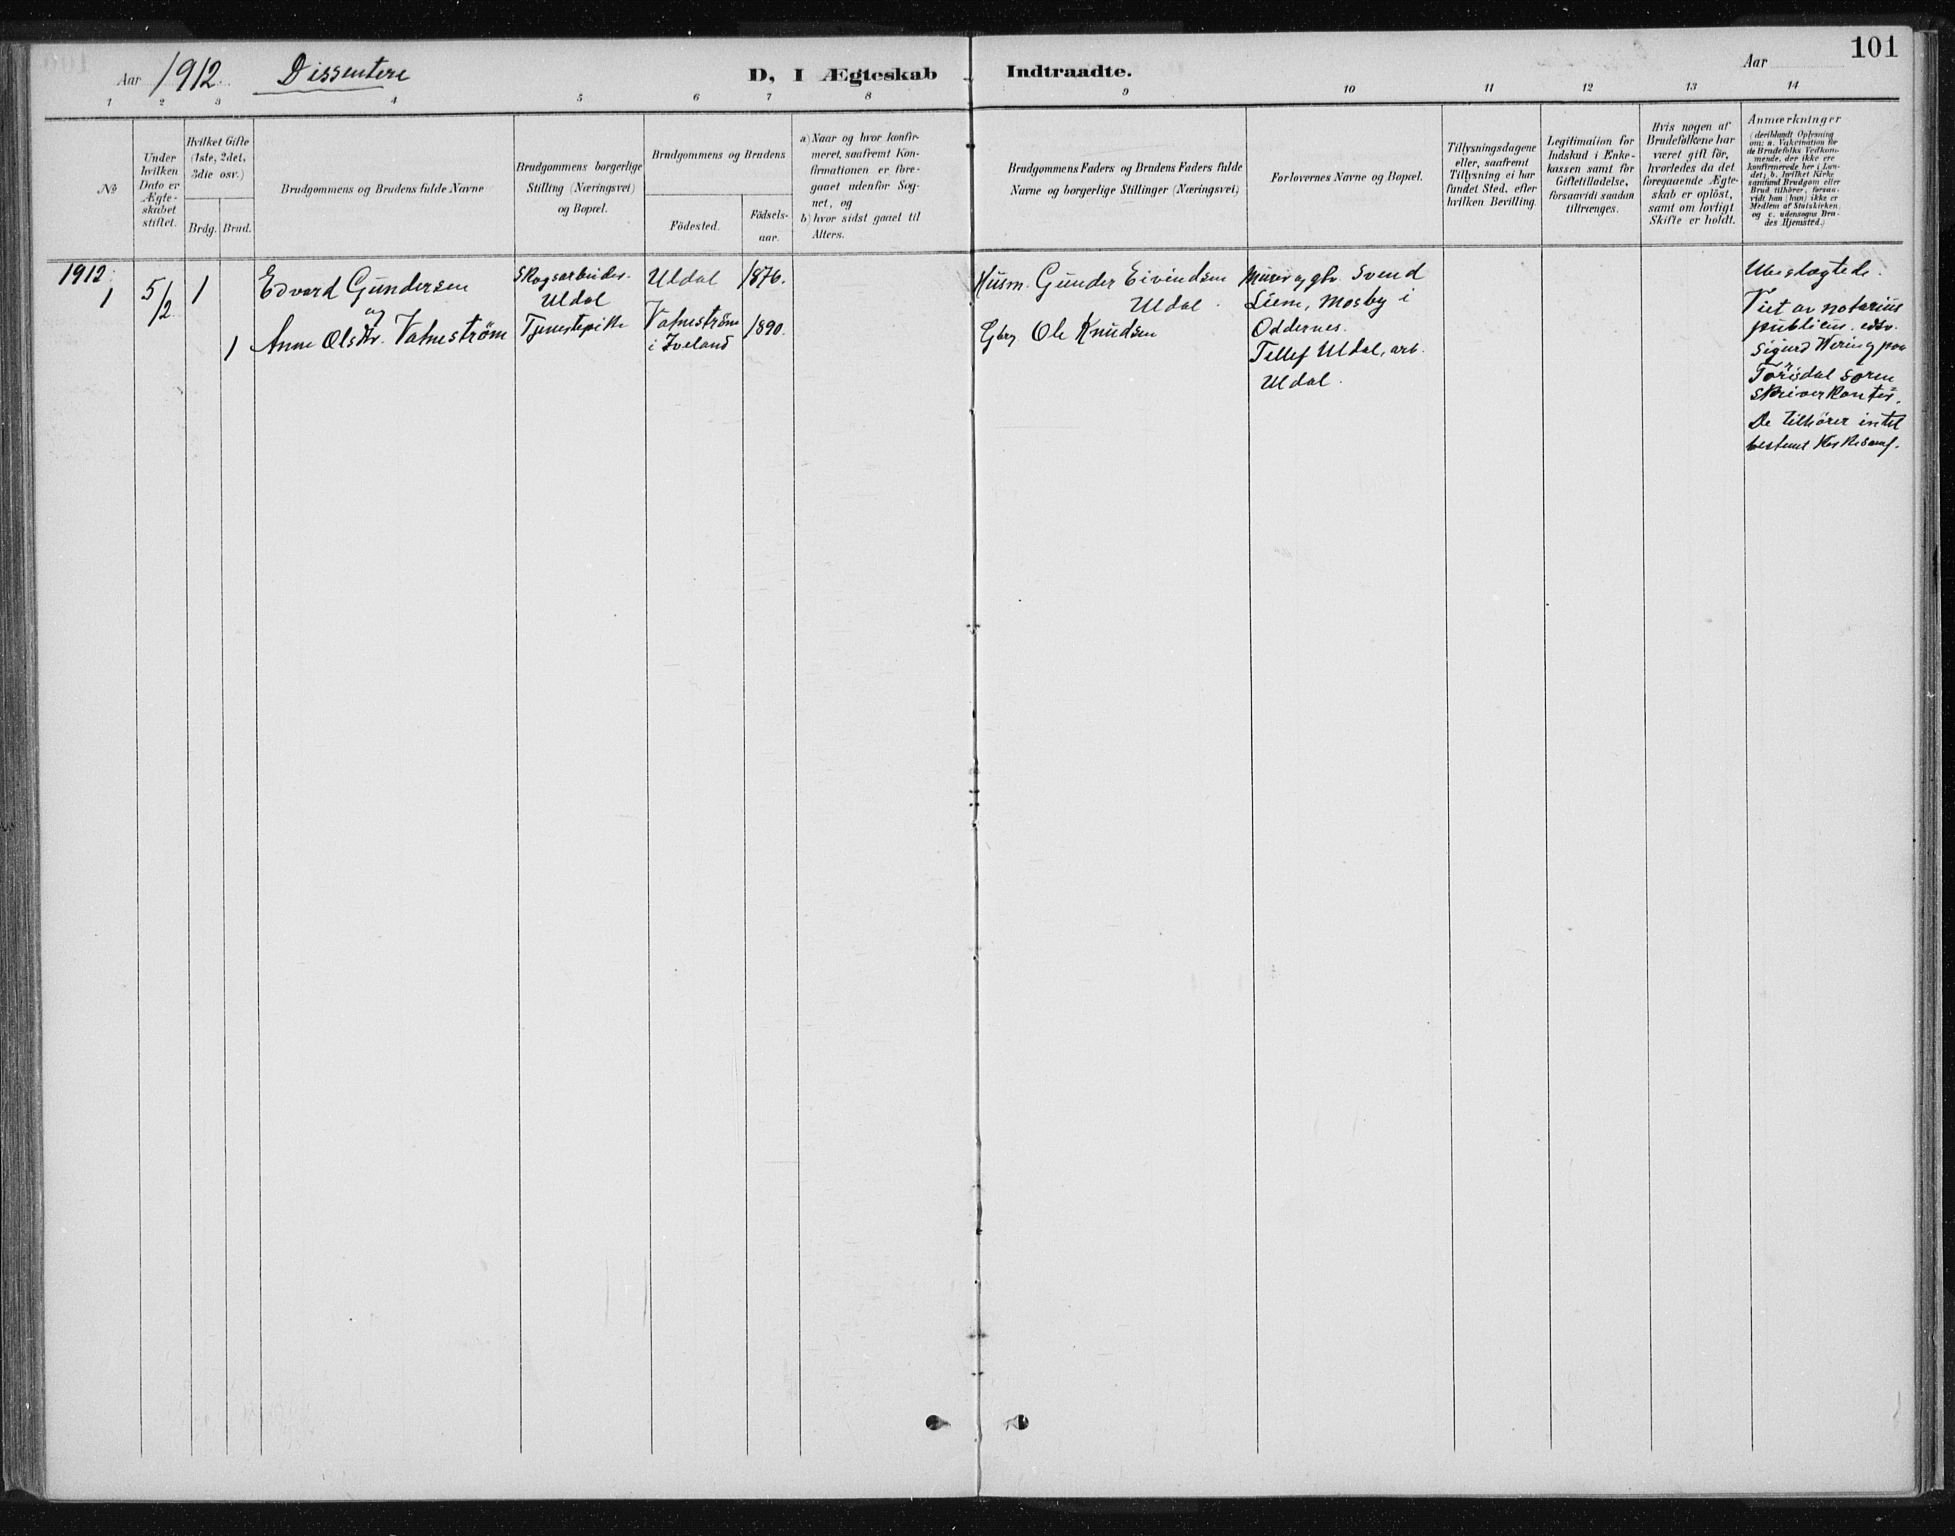 101
Aar 1912. Dissentere D, I Ægteskab Indtraadte. Aar
1 2 3 4 5 6 7 8 9 10 11 12 13 14
No
Under
hvilken
Dato er
Ægte-
skabet
stiftet.
Hvilket Gifte
(1ste, 2det,
3die osv.)
Brdg. Brud.
Brudgommens og Brudens fulde Navne
Brudgommens borgerlige
Stilling (Næringsvei)
og Bopæl.
Brudgommens og Brudens
Födested.
Födsels-
aar.
a) Naar og hvor konfir-
meret, saafremt Kon-
firmationen er fore-
gaaet udenfor Sog-
net, og
b) hvor sidst gaaet til
Alters.
Brudgommens Faders og Brudens Faders fulde
Navne og borgerlige Stillinger (Næringsvei)
Forlovernes Navne og Bopæl.
Tillysningsdagene
eller, saafremt
Tillysning ei har
fundet Sted, efter
hvilken Bevilling.
Legitimation for
Indskud i Enke-
kassen samt for
Giftetilladelse,
forsaavidt saadan
tiltrænges.
Hvis nogen af
Brudefolkene har
været gift för,
hvorledes da det
foregaaende Ægte-
skab er oplöst,
samt om lovligt
Skifte er holdt.
Anmærkninger
(deriblandt Oplysning
om: a. Vakcination for
de Brudefolks Vedkom-
mende, der ikke ere
konfirmerede her i Lan-
det; b. hvilket Kirke
samfund Brudgom eller
Brud tilhörer, forsaa-
vidt han (hun) ikke er
Medlem af Statskirken,
og c. udensogns Bru-
des Hjemsted.)
1912.
1 5/2 1 Edvard Gundersen
og
1 Anne Olsdtr. Vatneström
Skogsarbeider.
Uldal
Tjenestepike
Uldal 1876.
Vatneström
i Iveland 1890.
Husm. Gunder Eivindsen
Uldal.
Gbrg Ole Knudsen
Murer og gbr. Svend
Liene, Mosby i
Oddernes.
Tellef Uldal, arb.
Uldal.
Ubeslægtede.
Viet av notarius
publicus, edsv.
Sigurd Wering paa
Torisdal soren
skriverkontor.
De tilhører intet
bestemt Kirkesamf.